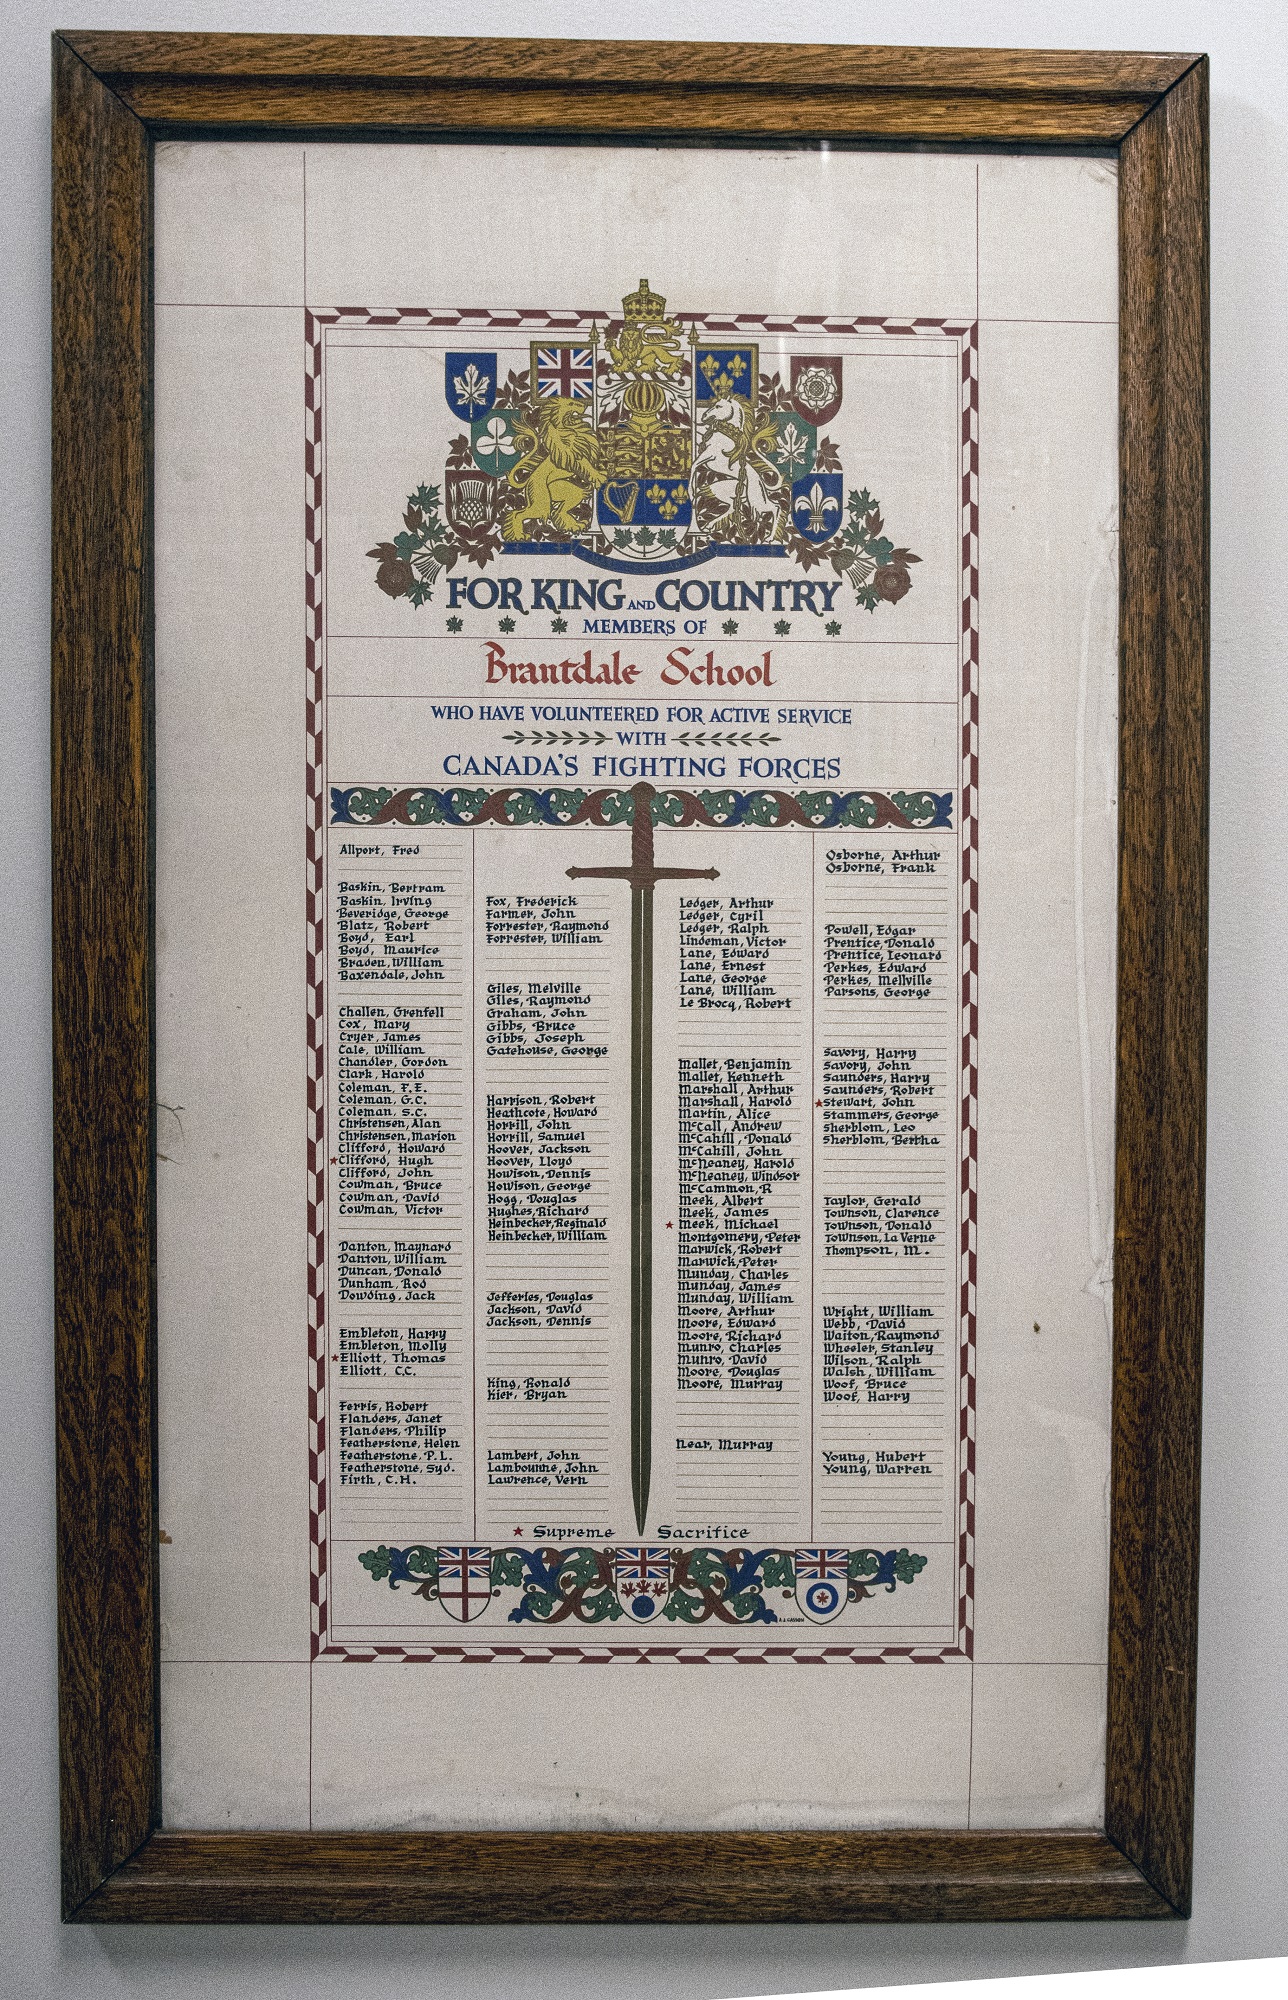 FOR KING AND COUNTRY
MEMBERS OF
Brantdale School
WHO HAVE VOLUNTEERED FOR ACTIVE SERVICE
WITH
CANADA'S FIGHTING FORCES
Allport, Fred
Baskin, Bertram
Baskin, Irving
Beveridge, George
Blatz, Robert
Boyd, Earl
Boyd, Maurice
Braden, William
Baxendale, John
Challen, Grenfell
Cox, Mary
Cryer, James
Cale, William
Chandler, Gordon
Clark, Harold
Coleman, F.E.
Coleman, G.C.
Coleman, S.C.
Christensen, Alan
Christensen, Marion
Clifford, Howard
★Clifford, Hugh
Clifford, John
Cowman, Bruce
Cowman, David
Cowman, Victor
Danton, Maynard
Danton, William
Duncan, Donald
Dunham, Rod
Dowding, Jack
Embleton, Harry
Embleton, Molly
★Elliott, Thomas
Elliott, C.C.
Ferris, Robert
Flanders, Janet
Flanders, Philip
Featherstone, Helen
Featherstone, P.L.
Featherstone, Syd.
Firth, C.H.
Fox, Frederick
Farmer, John
Forrester, Raymond
Forrester, William
Giles, Melville
Giles, Raymond
Graham, John
Gibbs, Bruce
Gibbs, Joseph
Gatehouse, George
Harrison, Robert
Heathcote, Howard
Horrill, John
Horrill, Samuel
Hoover, Jackson
Hoover, Lloyd
Howison, Dennis
Howison, George
Hogg, Douglas
Hughes, Richard
Heinbecker, Reginald
Heinbecker, William
Jefferies, Douglas
Jackson, David
Jackson, Dennis
King, Ronald
Kier, Bryan
Lambert, John
Lambourne, John
Lawrence, Vern
Ledger, Arthur
Ledger, Cyril
Ledger, Ralph
Lindeman, Victor
Lane, Edward
Lane, Ernest
Lane, George
Lane, William
Le Brocq, Robert
Mallet, Benjamin
Mallet, Kenneth
Marshall, Arthur
Marshall, Harold
Martin, Alice
McCall, Andrew
McCahill, Donald
McCahill, John
McNeaney, Harold
McNeaney, Windsor
McCammon, R
Meek, Albert
Meek, James
★ Meek, Michael
Montgomery, Peter
Marwick, Robert
Marwick, Peter
Munday, Charles
Munday, James
Munday, William
Moore, Arthur
Moore, Edward
Moore, Richard
Munro, Charles
Munro, David
Moore, Douglas
Moore, Murray
Near, Murray
Osborne, Arthur
Osborne, Frank
Powell, Edgar
Prentice, Donald
Prentice, Leonard
Perkes, Edward
Perkes, Mellville
Parsons, George
Savory, Harry
Savory, John
Saunders, Harry
Saunders, Robert
★Stewart, John
Stammers, George
Sherblom, Leo
Sherblom, Bertha
Taylor, Gerald
Townson, Clarence
Townson, Donald
Townson, La Verne
Thompson, M.
Wright, William
Webb, David
Waiton, Raymond
Wheeler, Stanley
Wilson, Ralph
Walsh, William
Woof, Bruce
Woof, Harry
Young, Hubert
Young, Warren
★ Supreme Sacrifice